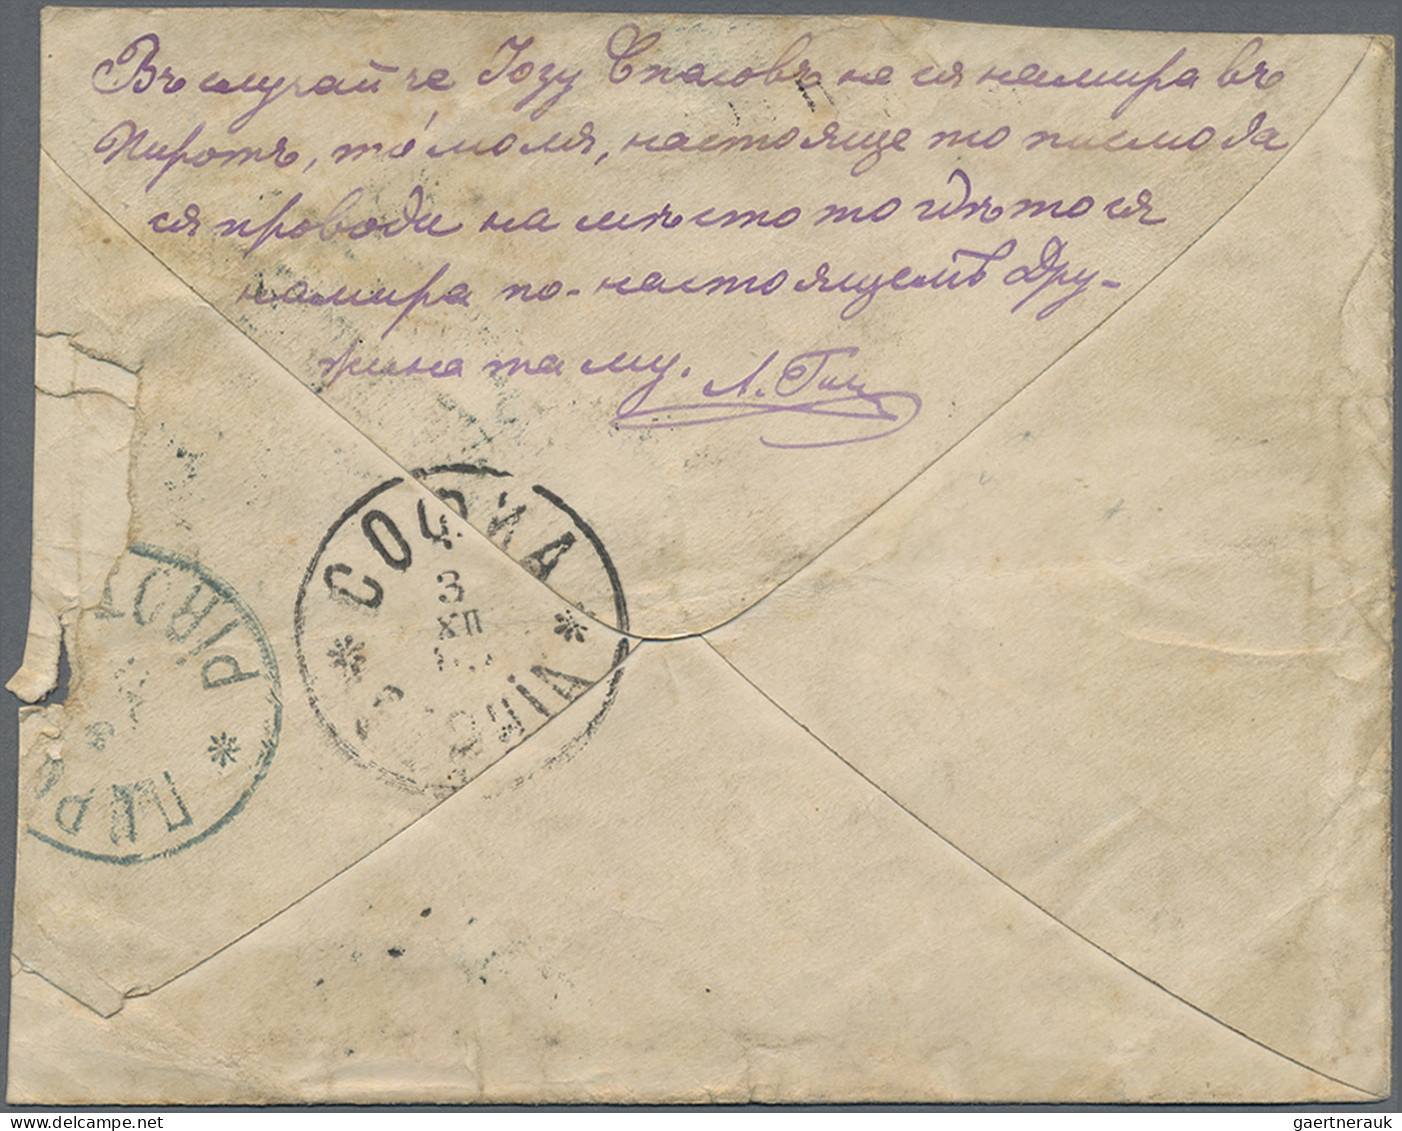 Въ случай че Гозу Спасовъ не ся намира въ
Пиротъ, то моля, настояще то писмо да
ся проводи на мѣсто то гдѣ то ся
намира по-настоящемъ Дру-
жина та му.
СОФИЯ
3
XII
PIROT